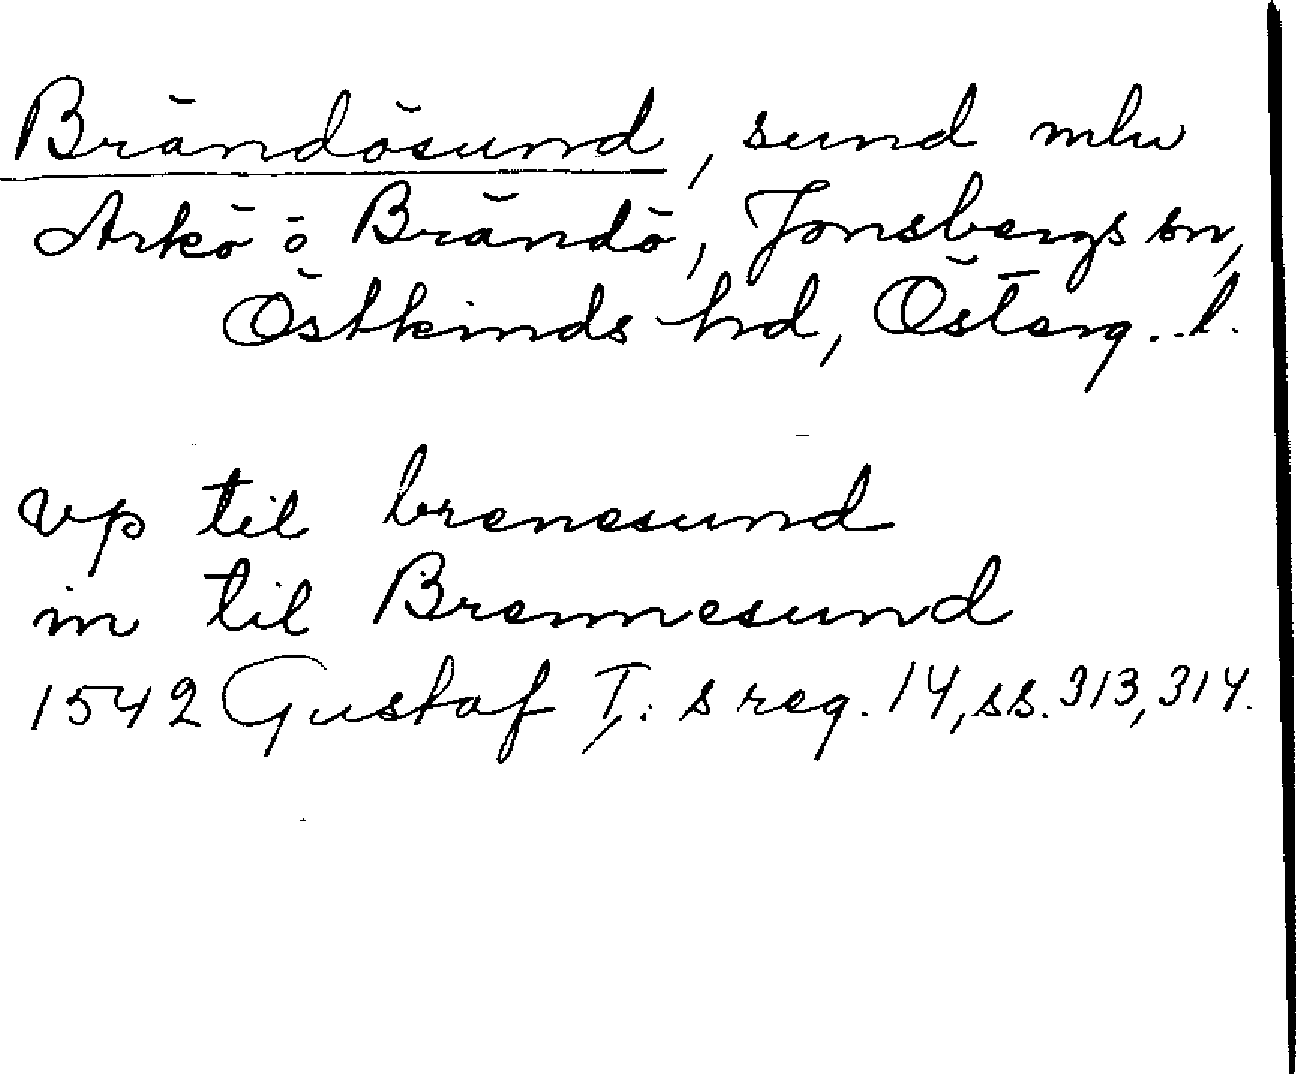 Brändösund, sund mlw
Arkö o Brändö, Jonsbergs sn,
Östkinds hd, Österg. l.
vp til brenesund
in til Brennesund
1542 Gustaf I: s reg. 14, ss. 313, 314.